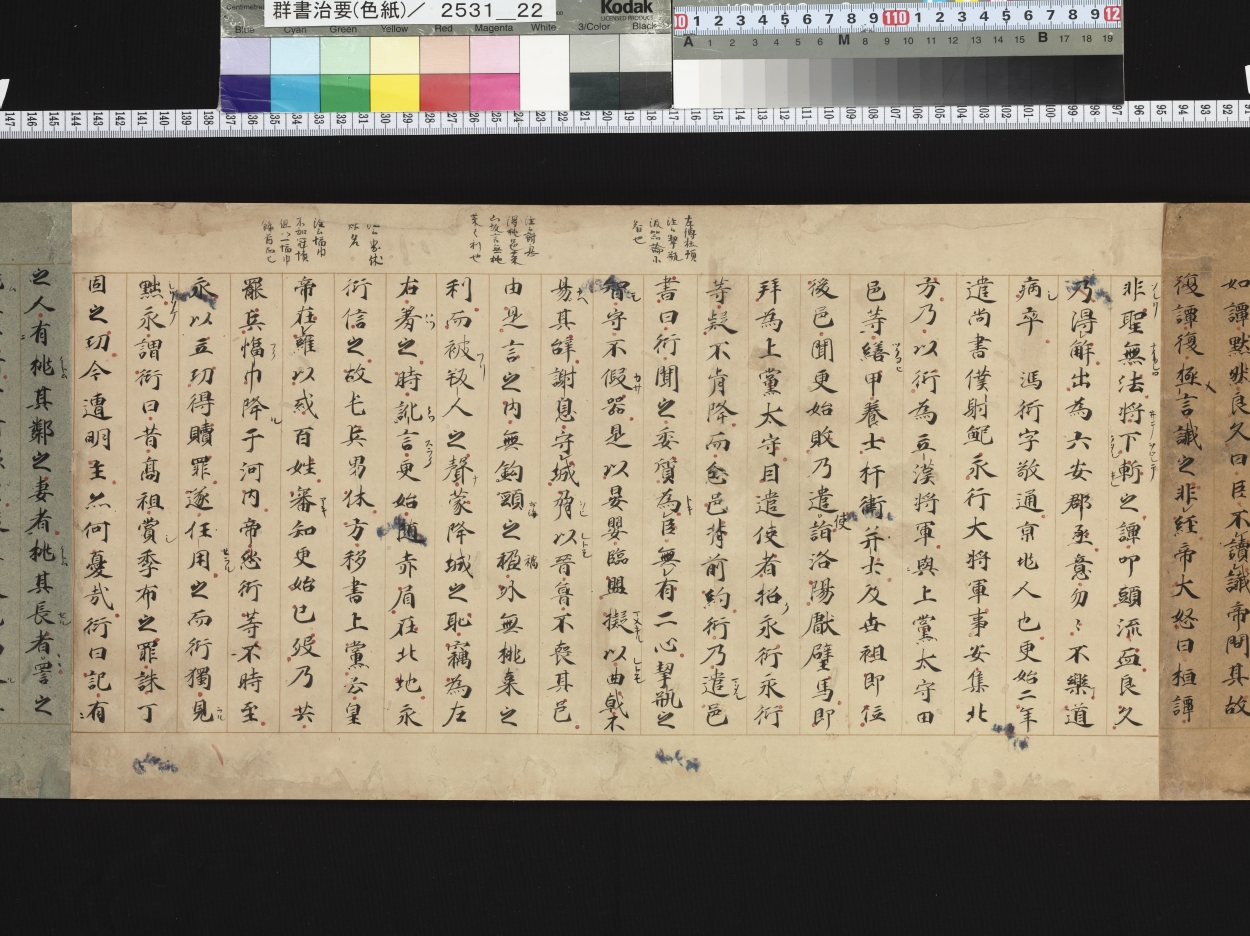 群書治要(色紙)／ 2531＿22
Kodak
LICENSED PRODUCT
Blue Cyan Green Yellow Red Magenta White 3/Color Black
如譚默然良久曰臣不讀讖帝問其故
復譚復極言讖之非經帝大怒曰桓譚
非聖無法將下斬之譚叩頭流血良久
乃得解出為六安郡丞意忽〻不樂道
病卒 馮衍字敬通京兆人也更始二年
遣尚書僕射鮑永行大將軍事安集北
方乃以衍為立漢將軍與上黨太守田
邑等繕甲養士扞衛并土及世祖即位
後邑聞更始敗乃遣詣洛陽獻璧馬即
拜為上黨太守因遣使者招永衍永衍
等疑不肯降而忿邑背前約衍乃遣邑
書曰衍聞之委質為臣無有二心挈瓶之
智守不假器是以晏嬰臨盟擬以曲戟不
易其辞謝息守城脅以晉魯不喪其邑
由是言之内無鉤頸之禍外無桃萊之
利而被叛人之聲蒙降城之恥竊為左
右羞之時訛言更始随赤眉在北地永
衍信之故屯兵界休方移書上黨云皇
帝在雍以惑百姓審知更始已殁乃共
罷兵幅巾降于河内帝怒衍等不時至
永以立功得贖罪遂任用之而衍獨見
黜永謂衍曰昔髙祖賞季布之罪誅丁
固之功今遭明主亦何憂哉衍曰記有
之人有挑其鄰之妻者挑其長者詈之